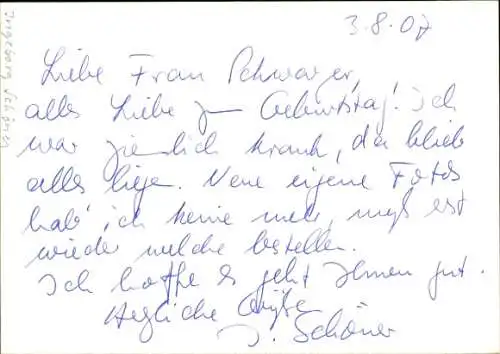 3.8.07
Liebe Frau Schwarzer,
alles Liebe zum Geburtstag! Ich
war ziemlich krank, da blieb
alles liegen. Neue eigene Fotos
hab' ich keine mehr, muß erst
wieder welche bestellen.
Ich hoffe es geht Ihnen gut.
Herzliche Grüße
I. Schöner
Ingeborg Schöner